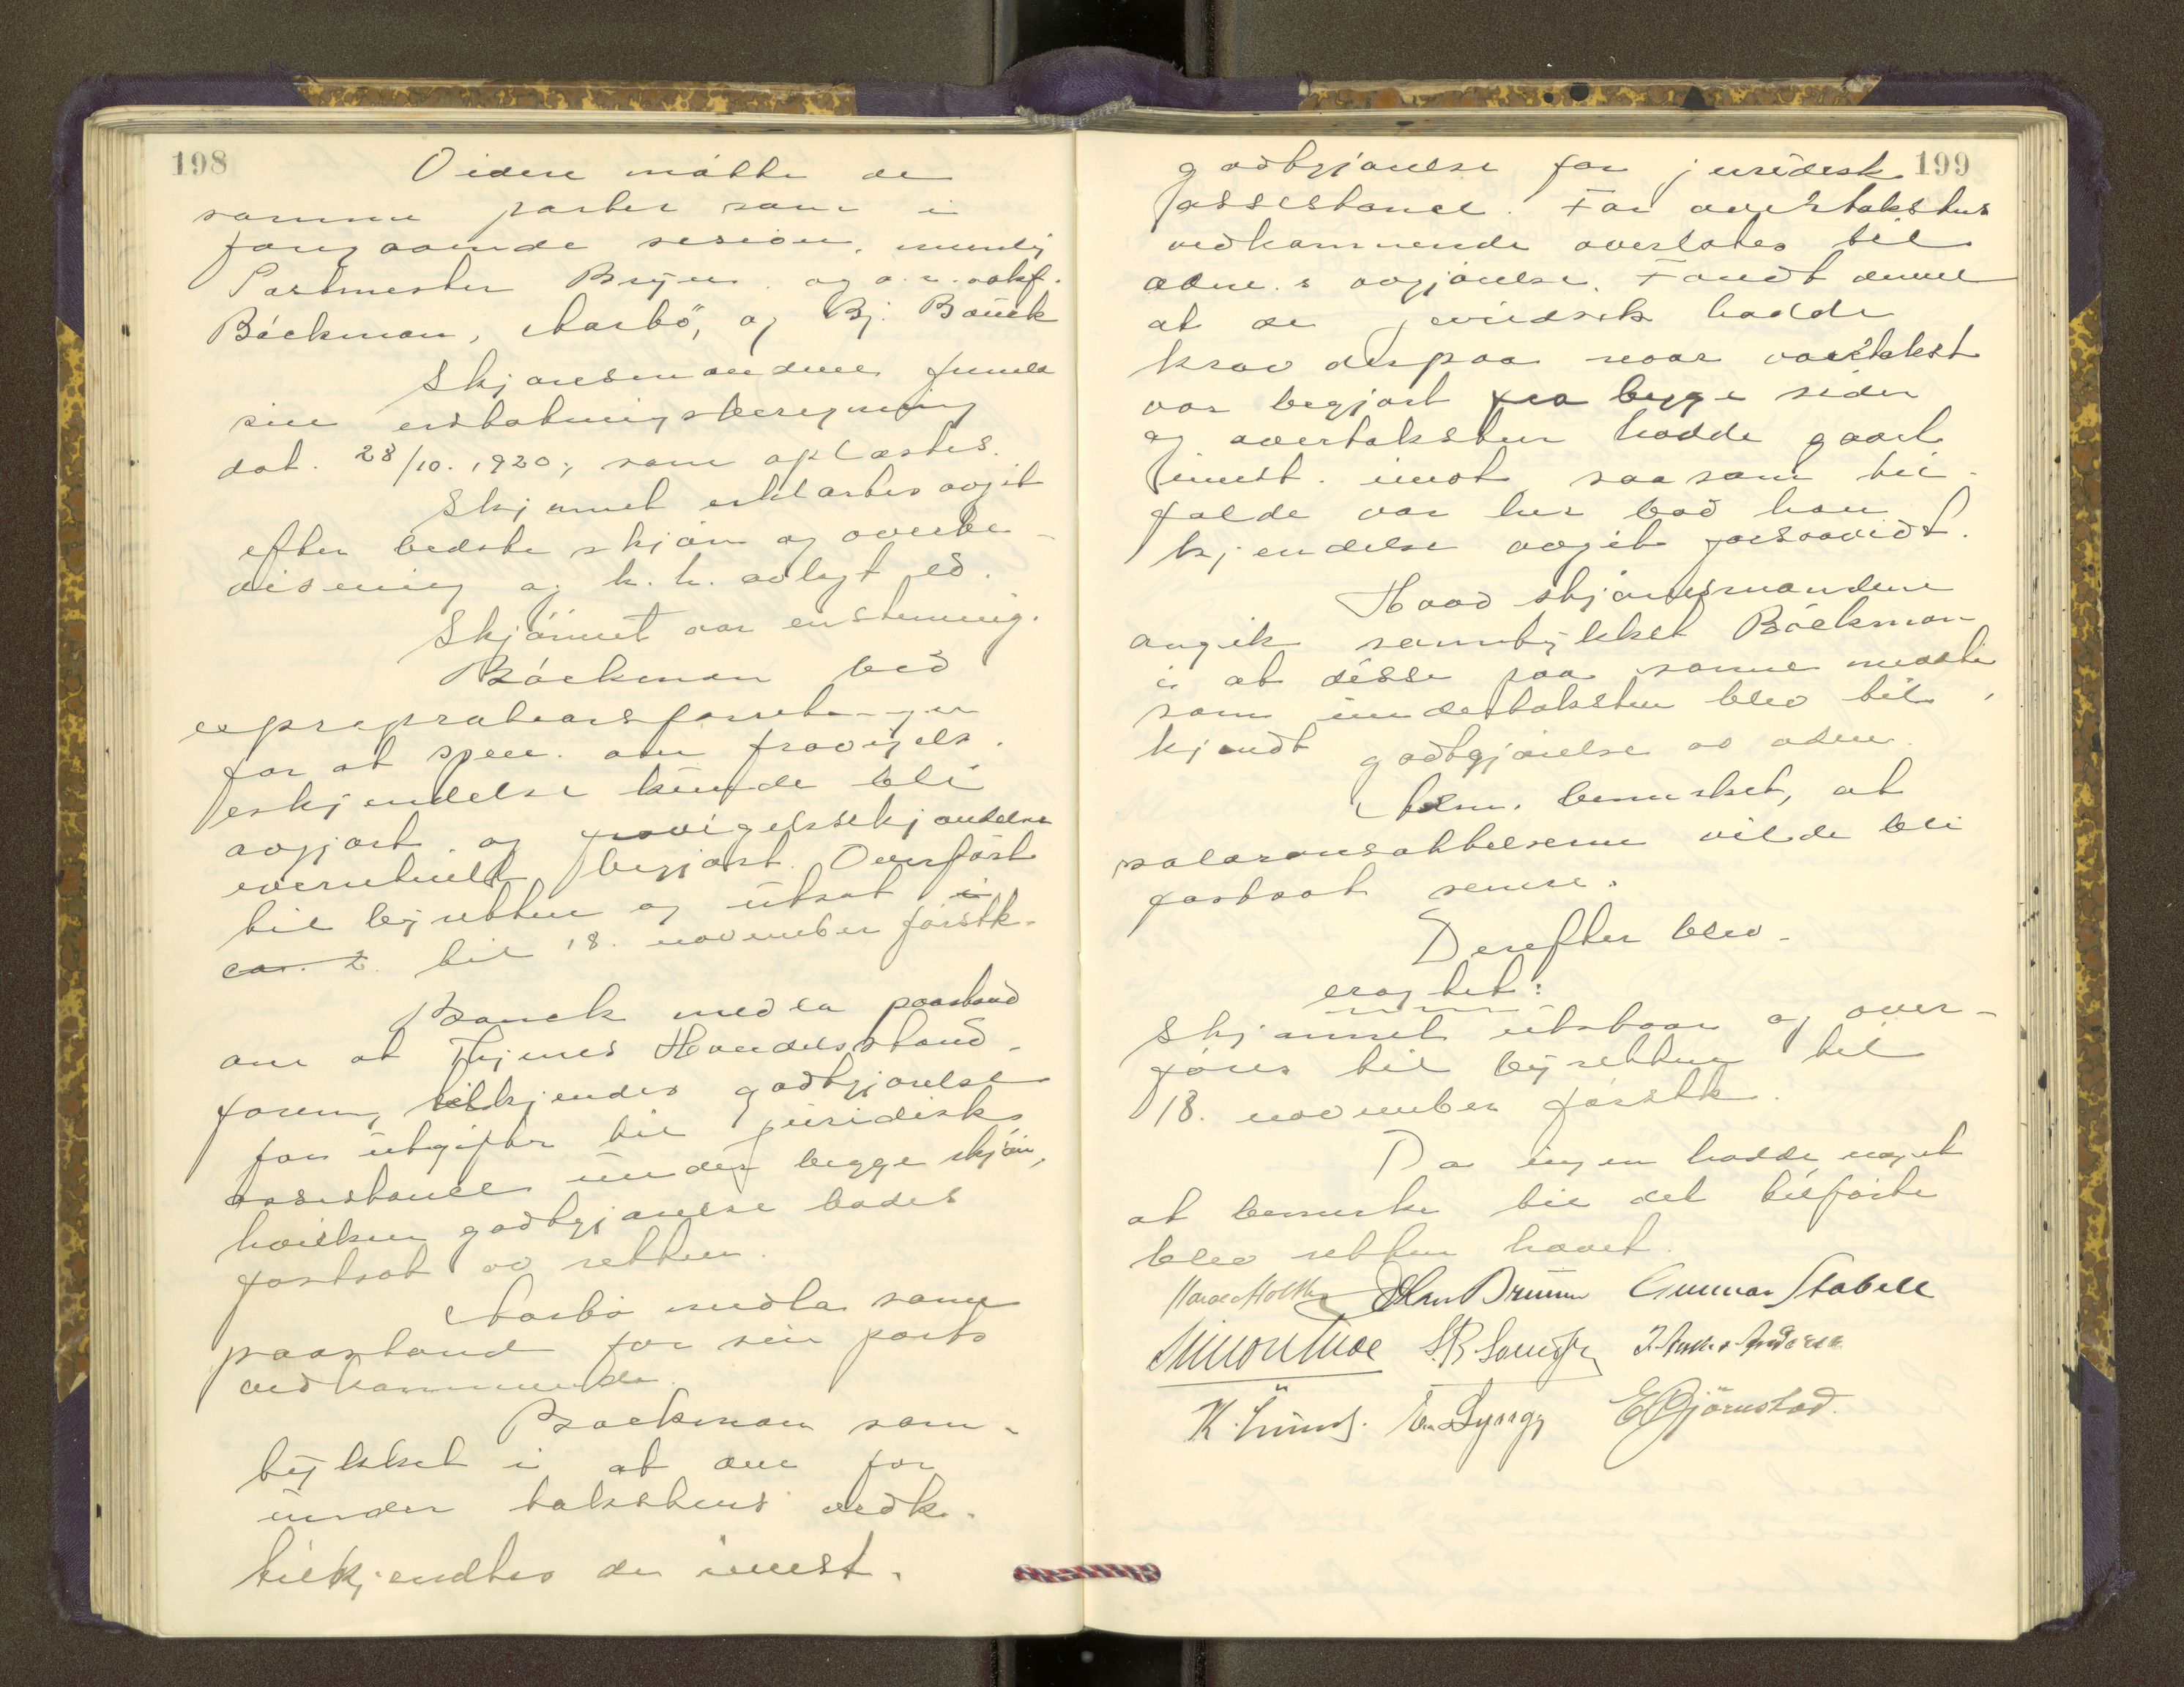 198
Videre mötte de
samme parter som i
foregaaende sesion, nemlig
Postmester Bryn og o.r.sakf.
Böckman, Aarbö, og Bj. Bonck
Skjønsmændene fremla
sin erstatningsberegning
dat. 28/10. 1920, som oplæstes.
Skjønnet erklærtes avgit
efter bedste skjøn og overbe-
visning og h.h. avlagt ed.
Skjønnet var enstemmig.
Böckman bad
expropriationsforretningen
for at spm. om fravigels.
eskjendelse kunde bli
avgjort og fravigelseskjendelse
eventuelt begjært. Overført
til byretten og utsat i
ca. 2. til 18. november førstk.
Bonck nedla paastand
om at Tyjenes Handelsstands-
forening tilkjendes godtgjørelse
for utgifter til juridisk
assistance under begge skjøn,
hvilken godtgjørelse bades
fastsat av retten.
Aarbö nedla samme
paastand for sin parts
vedkommende.
Böckman sam-
tykket i at der for
under takstens vedk.
tilkjendtes de inmst.
199
godtgjørelse for juridisk
assistance. For overtakstens
vedkommende overlates til
adm.s avgjørelse. Fandt denne
at de juridisk hadde
krav derpaa naar overtakst
var begjært fra begge sider
og overtaksten hadde gaat
inmst. imot saasom til-
fælde var her bad han
kjendelse avgit forsaavidt.
Hvad skjønsmændene
angik samtykket Böckman
i at disse paa samme maate
som undertaksten blev til-
kjendt godtgjørelse av adm.
Adm. bemerket, at
salæransættelserne vilde bli
fastsat senere.
Derefter blev
eragtet:
Skjønnet utstaar og over-
føres til byretten til
18. november førstk.
Da ingen hadde noget
at bemerke til det tilførte
blev retten hævet.
Harald Holth Olav Brunn Gunnar Stabell
Simon Moe S.R. J. Andersen
K. Lund. E. Lynge E Bjørnstad.